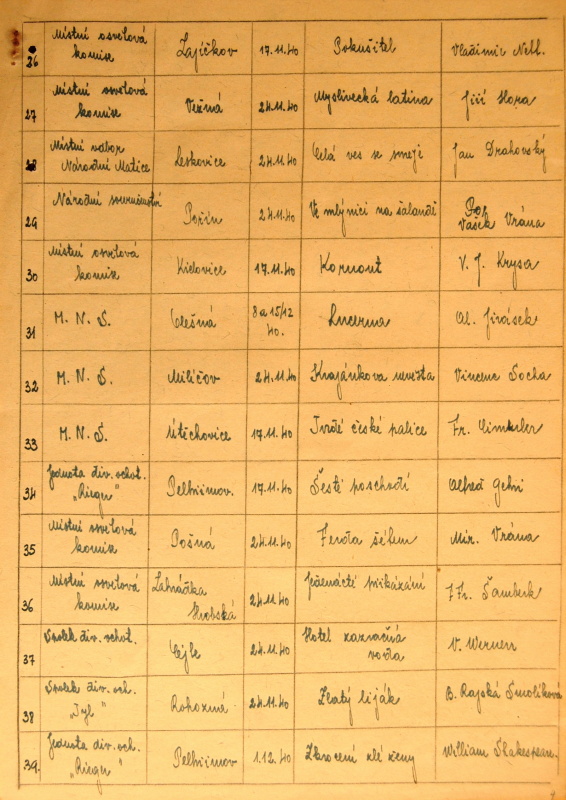 26 Místní osvětová komise Zajíčkov 17.11.40 Pokušitel Vladimír Nell.
27 Místní osvětová komise Vežná 24.11.40 Myslivecká latina Jiří Hora
28 Místní odbor Národní Matice Leskovice 24.11.40 Celá ves se směje Jan Drahovský
29 Národní souručenství Pořín 24.11.40 Ve mlýnici na šalandě Vašek Vrána
30 Místní osvětová komise Kielovice 17.11.40 Kornout V. J. Krysa
31 M. N. S. Olešná 8 a 15/12 40. Lucerna Al. Jirásek
32 M. N. S. Miličov 24.11.40 Krajánkova nevěsta Vincenc Socha
33 M. N. S. Útěchovice 17.11.40 Tvrdé české palice Fr.
34 Jednota div. ochot. „Rieger" Pelhřimov. 17.11.40 Šesté poschodí Alfred Gehri
35 Místní osvětová komise Pošná 24.11.40 Ferda šéfem Mir. Vrána
36 Místní osvětová komise Zahrádka 24.11.40 Jedenácté přikázání F. Fr. Šamberk
37 Spolek div. ochot. Cejle 24.11.40 Hotel zázračná voda V. Werner
38 Spolek div. och. „Tyl" Rohozná 24.11.40 Zlatý liják B. Rajská Smolíková
39. Jednota div. och. „Rieger" Pelhřimov 1.12.40 Zkrocení zlé ženy William Shakespear.